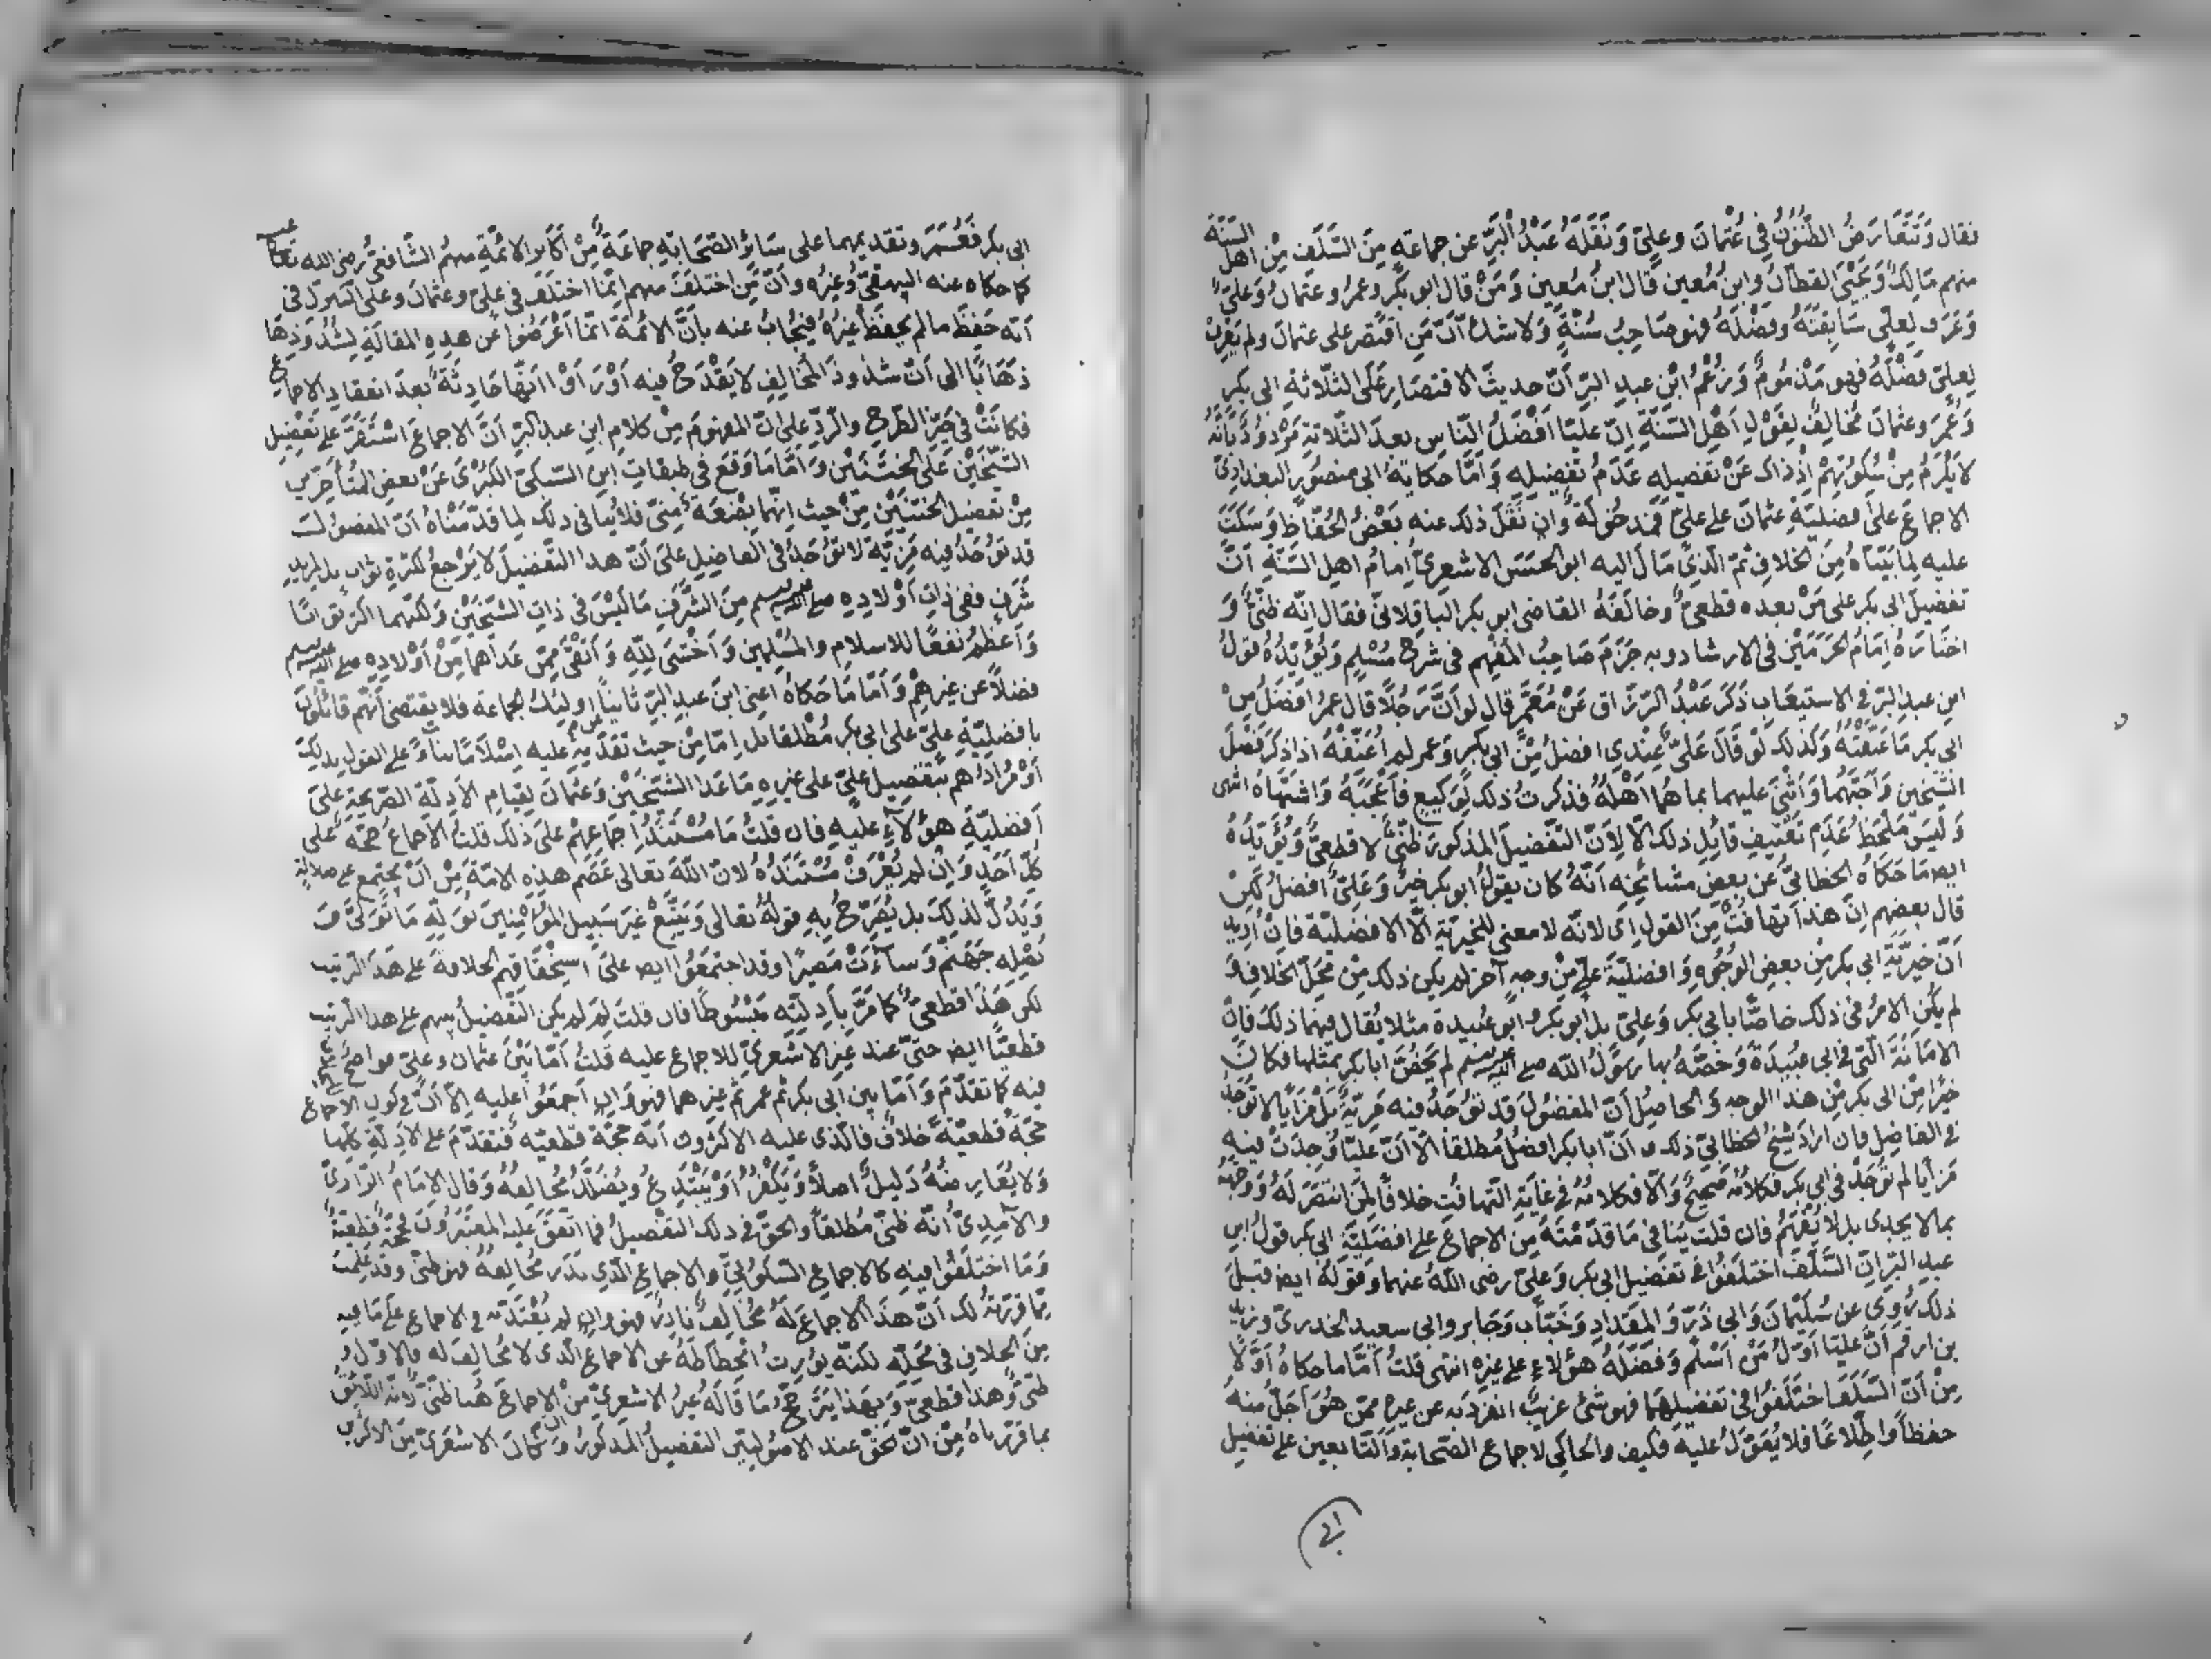 فقال وَتَتَعَارَضُ الظُّنُونُ فِى عُثْمَانَ وعلىّ وَنَقَلَهُ عَبْدُ الْبَرِّ عن جماعة مِنَ السَّلَفِ مِنْ اهل السّنّة
منهم مَالِكٌ وَيَحْيَى القطانُ وابنُ مُعين قال ابنُ مُعِينٍ وَمَنْ قال ابو بكرٍ وعمرُ وعثمانُ وَعلىٌّ
وَعَرَفَ لِعلىٍّ سَابِقَتَهُ وفَضْلَهُ فهو صَاحِبُ سُنّةٍ وَلا شكَّ اَنّ مَنِ اقتصر على عثمانَ ولم يَعْرِفْ
لِعلىٍّ فَضْلَهُ فهو مَذْمُومٌ وَزَعْمُ ابْنِ عبدِ البَرِّ اَنّ حديثَ الاقتصارِ عَلَى الثّلاثةِ ابى بكر
وَعُمَرَ وعثمانَ مُخالِفٌ لِقَوْلِ اَهْلِ السّنّةِ اِنّ عليّا اَفْضَلُ النّاسِ بعدَ الثّلاثةِ مَرْدُودٌ بِاَنَّهُ
لا يَلْزَمُ مِنْ سُكُوتِهِمْ اِذْ ذاك عَنْ تفضيلِهِ عَدَمُ تفضيلِهِ وَاَمَّا حكايةُ ابى منصورٍ البغدادىّ
الاجماعَ علىَ افضليّةِ عثمانَ على علىٍّ فمدخولَةٌ وَاِن نَقَلَ ذلك عنه بَعْضُ الحُفّاظِ وَسَكَتَ
عليه لِما بَيّنّاهُ مِنَ الخلافِ ثمّ الّذِى مَالَ اليه ابو الحسَنِ الاشعرىّ اِمَامُ اهلِ السّنّةِ اَنّ
تفضيلَ ابى بكرٍ على مَنْ بعده قطعىٌّ وخالَفَهُ القاضى ابو بكر الباقلانىّ فقال اِنّه ظنّىٌّ وَ
اختَارَهُ اِمَامُ الحرَمَيْن فى الارشاد وبه جَزَمَ صَاحِبُ المُفْهِم فى شرح مُسْلِمٍ وَيُؤَيِّدُهُ قولُ
ابن عبد البَرّ فى الاستيعَاب ذَكَرَ عَبْدُ الرَّزَّاق عَنْ مُعَمَّرٍ قال لو اَنّ رَجُلًا قال عمرُ افضلُ مِنْ
ابى بكر مَا عَنَّفْتُهُ وَكذلك لَوْ قَالَ عَلىٌّ عِنْدِى افضلُ مِنْ ابى بكرٍ وعمرَ لم اُعَنِّفْهُ اذا ذكرَ فَضْلَ
الشّيخين وَاَحَبَّهُمَا وَاَثْنَى عليهما بما هُمَا اَهْلُهُ فذكرتُ ذلك لِوَكيعٍ فَاَعْجَبَهُ وَاشتَهَاهُ انتهى
وَلَيسَ مَلْحَظُ عَدَمِ تَعْنيفِ قائِلِ ذلك الّا لِاَنّ التّفضيلَ المذكورَ ظنّىٌّ لا قطعىٌّ وَيُؤَيّدُهُ
ايضا مَا حَكَاهُ الخطابىُّ عن بعض مشائخِه اَنّهُ كان يقولُ ابو بكر خيرٌ وَعَلىٌّ افضلُ لكنْ
قال بعضهم اِنّ هذا تهافُتٌ مِنَ القول اِى لانّه لا معنى للخيريّةِ الّا الافضليّة فاِنْ اُريدَ
اَنّ خيريّةَ ابى بكر مِن بعضِ الوُجُوهِ وَافضليّةَ علىٍّ مِنْ وجهٍ آخرَ لم يكن ذلك مِنْ مَحَلِّ الخلافِ وَ
لم يكُنِ الامرُ فى ذلك خاصًّا بابى بكر وَعلىٍّ بل ابو بكر وابو عُبيدة مثلا يُقال فيهما ذلك فَاِنّ
الامَانَةَ الّتى فى ابى عُبَيدَةَ وَخَصَّهُ بها رسولُ اللّه صلى اللّه عليه وسلم لم يَخُصَّ ابا بكرٍ بمثلها فكان
خيرًا مِنْ ابى بكرٍ مِنْ هذا الوجه وَالحاصِلُ اَنّ المفضُولَ قد تُوجَدُ فيه مَزيّةٌ بل مَزَايَا لا تُوجَدُ
فى الفاضِلِ فان ارادَ شيخُ الخطابىِّ ذلك و اَنّ ابا بكر افضلُ مُطلقا الّا اَنّ عليّا وُجِدَتْ فيهِ
مَزَايا لم تُوجَدْ فى ابى بكر فكلامُهُ صَحيحٌ وَاِلّا فكلامُهُ فى غايَةِ التّهافُتِ خلافًا لِمَنِ انتصَرَ لَهُ وَوَجّهَهُ
بما لا يجدى بل لا يُفْهَمُ فان قلت يُنافى مَا قدّمْتَهُ مِنَ الاجماعِ على افضليّةِ ابى بكر قولُ ابن
عبد البَرّ اِنّ السَّلَفَ اختلَفُوا فى تفضيلِ ابى بكر وَعلىٍّ رضى اللّه عنهما وَقولُهُ ايضا قبلَ
ذلك رُوِىَ عن سُلَيْمَانَ وَابى ذَرّ وَالمِقدَادِ وَخَبّابٍ وَجَابرٍ وابى سعيدٍ الخدرىّ وزيدِ
بن ارقم اَنّ عليّا اَوّلُ مَنْ اَسْلَم وَفَضّلَهُ هؤلاءِ على غيرِه انتهى قلتُ اَمّا ما حكاهُ اوّلًا
مِنْ اَنّ السَّلَفَ اختَلَفُوا فى تفضيلِهِمَا فهو شئٌ غريبٌ انفرَدَ به عن غيرِه ممّن هُوَ اَجلُّ منهُ
حفظًا وَاطِّلاعًا فلا يُعَوّلُ عليه فكيف والحاكى لاجماع الصّحابةِ وَالتّابعين على تفضيل
ابى بكر فعُمَرَ وتقديمهما على سَائرِ الصّحَابةِ جماعَةٌ مِنْ اَكَابرِ الائمّةِ منهمُ الشّافعىُّ رضى الله تعالى عنه
كما حكاه عنه البيهقىُّ وَغيرُه وانّ مَنِ اختلَفَ منهم انّما اختلَفَ فى علىّ وعثمانَ وعلى التنزّل فى
اَنّه حَفِظَ ما لم يحفَظْ غيرُهُ فيُجَابُ عنه بِاَنَّ الائمّةَ انّما اَعْرَضُوا عَن هذِهِ المقالَةِ لِشُذُوذِهَا
ذهَابًا الى اَنّ شذُوذَ المُخالِفِ لا يَقْدَحُ فيه اَوْ رَاَوْا انّها حَادِثَةٌ بعدَ انعقادِ الاجماع
فكانَتْ فى حَيّزِ الطَّرْحِ والرّدِّ على اَنّ المفهومَ مِنْ كلامِ ابن عبد البَرّ اَنّ الاجماعَ استَقَرّ على تفضيلِ
الشّيْخَيْنِ عَلَى الختَنَيْن وَاَمّا مَا وَقَعَ فى طبقاتِ ابنِ السّبكىِّ الكبرىَ عَنْ بعضِ المتأخرّين
مِنْ تفضيل الختنَيْن مِنْ حيثُ اِنّهما بَضْعَةٌ فلا يُنافى ذلك لما قدّمْناهُ اَنّ المفضولَ
قد تُوجَدُ فيه مَزيّةٌ لا تُوجَدُ فى الفاضِلِ علىَ اَنّ هذا التّفضيلَ لا يَرْجعُ لكثرةِ ثوابٍ بل لمزيدِ
شَرَفٍ ففى ذاتِ اَوْلادِهِ صلى اللّه عليه وسلم مِنَ الشّرَفِ مَا لَيْسَ فى ذاتِ الشّيْخَيْنِ وَلكنّهما اكثرُ ثوابًا
وَاَعظَمُ نفعًا للاسلامِ والمُسْلِمينَ وَاَخْشَى لِلّهِ وَاَتْقَى مِمّن عَداهما مِنْ اَوْلادِهِ صلى اللّه عليه وسلم
فضلًا عن غيرهِمْ وَاَمّا مَا حَكاهُ اعنى ابنَ عبدِ البَرّ ثانياً عن اولئِكَ الجماعَةِ فلا يقتضى اَنّهم قائلُونَ
بافضليّةِ علىٍّ على ابى بكرٍ مُطلقا بل اِمّا مِنْ حيثُ تقدّمِهِ عليه اِسْلامًا بناءً على القولِ بذلِكَ
اَوْ مُرَادُهم بتفضيلِ علىٍّ على غيرِهِ مَا عَدَا الشّيْخَيْنِ وَعُثمَانَ لِقيامِ الاَدِلّةِ الصّريحةِ علَى
اَفضليّةِ هؤلآءِ عليهِ فان قلتَ مَا مُسْتَنَدُ اِجمَاعِهِمْ علىَ ذلك قلتُ الاجماعُ حُجّةٌ على
كلّ اَحَدٍ وَاِنْ لم يُعْرَفْ مُسْتَنَدُهُ لانّ اللّهَ تعالى عَصَم هذه الامّةَ مِنْ اَنْ يجتمِعَ على ضلالةٍ
وَيَدُلُّ لذلِكَ بل يُصَرّحُ بِهِ قولُهُ تعالى وَيَتَّبِعْ غيرَ سَبيلِ المُؤْمِنينَ نُوَلِّهِ مَا تَوَلَّى وَ
نُصْلِهِ جَهَنّمَ وَسآءَتْ مَصيرًا وقد اجتمعُوا ايضا علىَ استحقاقِهِمُ الخلافةَ على هذَا التّرتيبِ
لكن هَذا قطعىٌّ كما مَرَّ بِاَدِلّتِهِ مَبْسُوطًا فان قلتَ لِمَ لم يكن التّفضيلُ بينهم على هذا التّرتيبِ
قطعيًّا ايضا حتىّ عند غيرِ الاشعرىّ للاجماع عليه قلتُ اَمّا بَيْنَ عثمان وعلىّ فواضحٌ
فيه كما تقدّمَ وَاَمّا بينَ اَبى بكر ثمّ عمرَ ثمّ غيرهما فهو وَاِنْ اَجمَعُوا عليه اِلّا اَنّ فى كونِ الاجماع
حجّةً قطعيّةً خلافٌ فالّذى عليه الاكثرون اَنّه حجّةٌ قطعيّه فَتقدّمَ على الاَدِلّةِ كلّها
وَلا يُعَارِضُهُ دَليلٌ اصلًا وَيُكفَّرُ اَوْ يُبَتَّدَعُ ويُضَلّلُ مُخالفُهُ وَقال الامَامُ الرّازىّ
والآمدِىّ اَنّه ظنىٌّ مُطلقًا والحقّ فى ذلك التفصيلُ فما اتّفقَ عَليه المعتبَرُونَ حُجّةٌ قطعيّةٌ
وَمَا اختلَفُوا فيهِ كالاجماعِ السّكوتىِّ والاجماعِ الّذى نَدَرَ مُخالِفُهُ فهو ظنىٌّ وقد علِمتَ
ممّا قرّرْتُهُ لك اَنّ هذَا الاجماعَ لَهُ مُخالِفٌ نادِرٌ فهو وانْ لم يُعْتَدَّ به فى الاجماع على مَا فيهِ
مِنَ الخلافِ فى مَحَلّه لكنّه يُورِثُ انحِطَاطَهُ عن الاجماعِ الّذى لا مُخالِفَ له فالاوّلُ
ظنىٌّ وَهذا قطعىٌّ وَبهذا يَتَرَجّحُ مَا قالَهُ غيرُ الاشعرىِّ مِنْ اَنّ الاجماعَ هُنا ظنّىٌّ لانّه اللّائقُ
بما قرّرناهُ مِنْ انّ الحقّ عند الاصُوليّين التفصيلُ المذكورُ وَكانَ الاشعَرىّ مِنَ الاكثرينَ